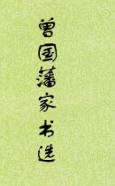 曾国藩家书选